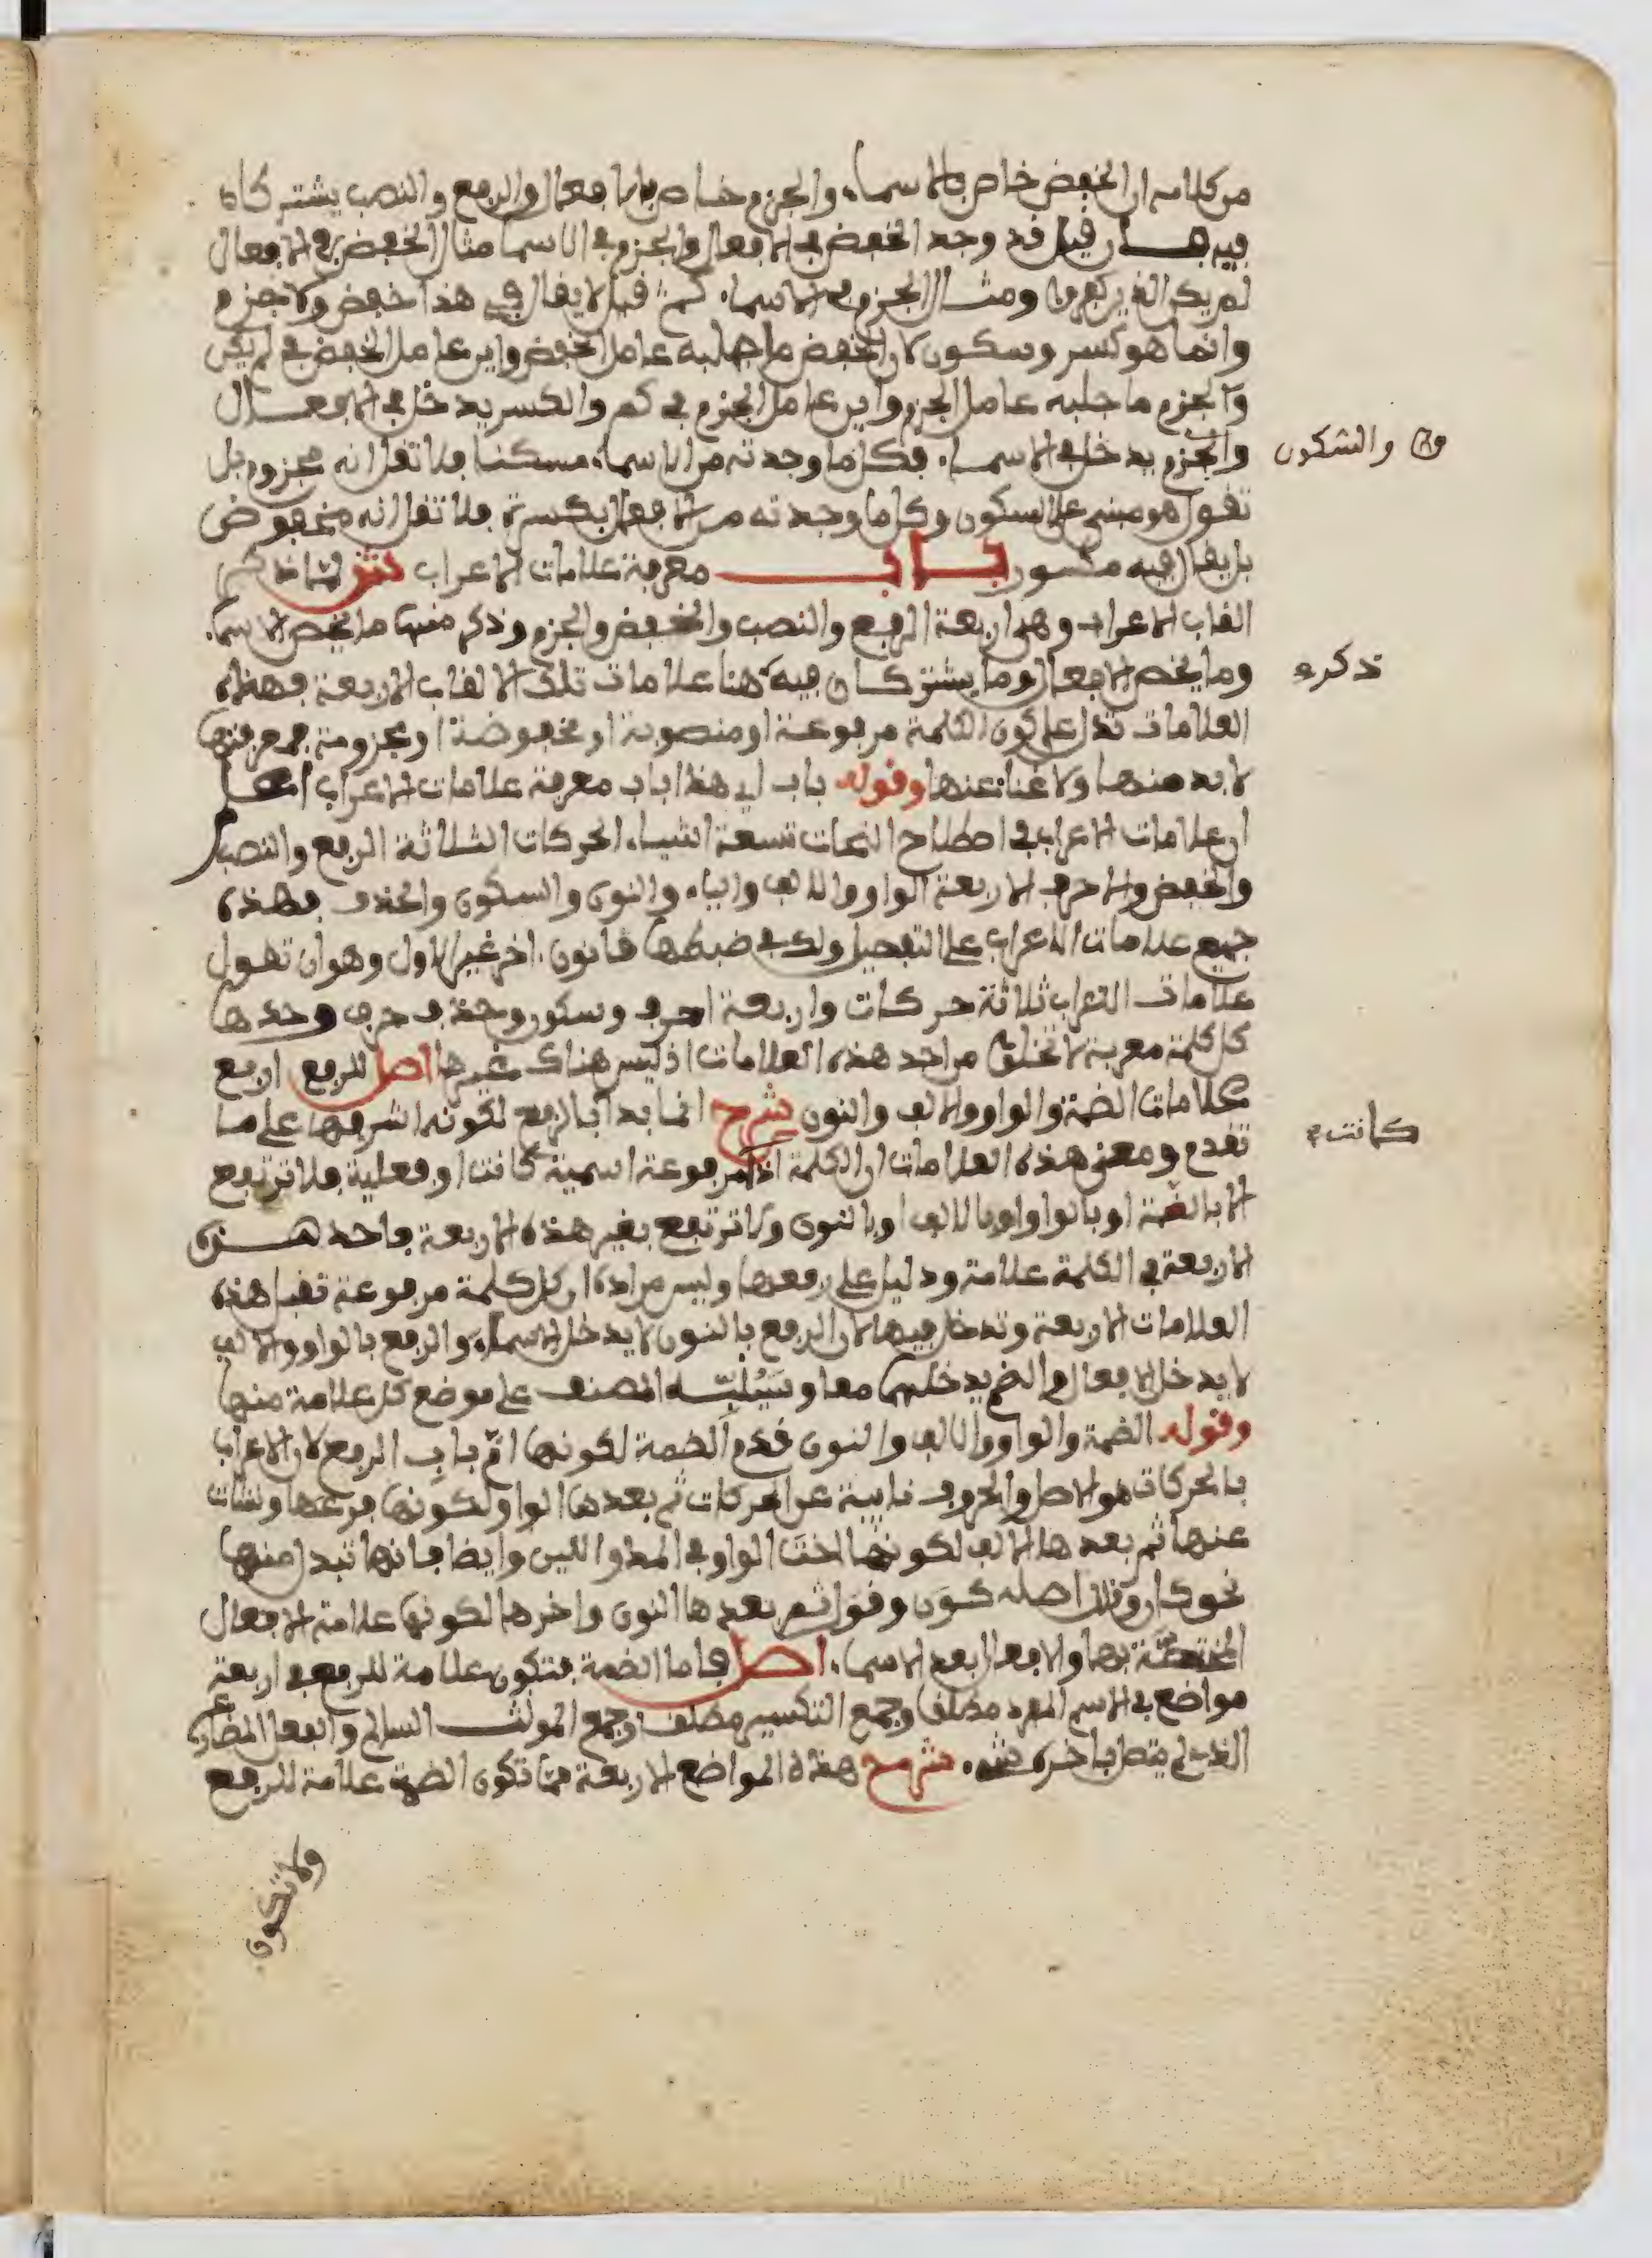 من كلامه ان الخفض خاص بالاسماء والجزم خاص بالافعال والرفع والنصب يشتركان
فيهما فان قيل قد وجد الخفض في الافعال والجزم في الاسما مثال الخفض في الافعال
لم يكن الذين كفروا ومثال الجزم في الاسماء كم قيل لا يقال في هذا خفض ولا جزم
وانما هو كسر وسكون لان الخفض ما جلبه عامل الخفض واين عامل الخفض في لم يكن
والجزم ما جلبه عامل الجزم واين عامل الجزم في كم والكسر يدخل في الافعال
والجزم يدخل في الاسماء فكل ما وجدته من الاسماء مسكنا فلا تقل انه مجزوم بل
والسكون
تقول هو مبني على السكون وكل ما وجدته من الافعال بكسرة فلا تقل انه مخفوض
بل يقال فيه مكسور باب معرفة علامات الاعراب شرح لما ذكر
القاب الاعراب وهي اربعة الرفع والنصب والخفض والجزم وذكر منها ما يخص الاسماء
وما يخص الافعال وما يشتركان فيه هنا علامات تلك الالقاب الاربعة فهذه
ذكر
العلامات تدل على كون الكلمة مرفوعة او منصوبة او مخفوضة او مجزومة فمعرفتها
لا بد منها ولا غناء عنها وقوله باب اي هذا باب معرفة علامات الاعراب اعلم
ان علامات الاعراب في اصطلاح النحات تسعة اشياء الحركات الثلاثة الرفع والنصب
والخفض والاحرف الاربعة الواو والالف والياء والنون والسكون والحذف فهذه
جميع علامات الاعراب على التفصيل ولك في ضبطها قانون اخر غير الاول وهو ان تقول
علامات الاعراب ثلاثة حركات واربعة احرف وسكون وحذف حرف وحدها
كل كلمة معربة لا تخلو من احد هذه العلامات اذ ليس هناك غيرها اصل للرفع اربع
علامات الضمة والواو والالف والنون شرح انما بدا بالرفع لكونه اشرفها على ما
تقدم ومعنى هذه العلامات ان الكلمة اذا مرفوعة اسمية كانت او فعلية فلا ترتفع
كانت
الا بالضمة او بالواو او بالالف او بالنون ولا ترتفع بغير هذه الاربعة فاحد هذه
الاربعة في الكلمة علامة ودليل على رفعها وليس مراده ان كل كلمة مرفوعة تقبل هذه
العلامات الاربعة وتدخل فيها لان الرفع بالنون لا يدخل الاسماء والرفع بالواو والالف
لا يدخل الافعال والضم يدخلهما معا وسينبه المصنف على موضع كل علامة منها
وقوله الضمة والواو والالف والنون قدم الضمة لكونها ام باب الرفع لان الاعراب
بالحركات هو الاصل والحروف نايبة عن الحركات ثم بعدها الواو لكونها فرعها ونشات
عنها ثم بعدها الالف لكونها اخت الواو في المد واللين وايضا فانها تبدل منها
نحو كان وقال اصله كون وقول ثم بعدها النون واخرها لكونها علامة الافعال
المختصة بها والافعال بعد الاسماء اصل فاما الضمة فتكون علامة للرفع في اربعة
مواضع في الاسم المفرد مطلقا وجمع التكسير مطلقا وجمع المونث السالم والفعل المضارع
الذي لم يتصل باخره شيء شرح هذه المواضع الاربعة مما تكون الضمة علامة للرفع
ولا تكون